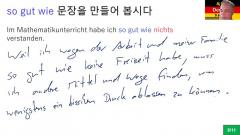 so gut wie 문장을 만들어 봅시다
Im Mathematikunterricht habe ich so gut wie nichts
verstanden.
Weil ich wegen der Arbeit und meiner Familie
so gut wie keine Freizeit habe, muss
ich andere Mittel und Wege finden, um
wenigstens ein bisschen Druck ablassen zu können.